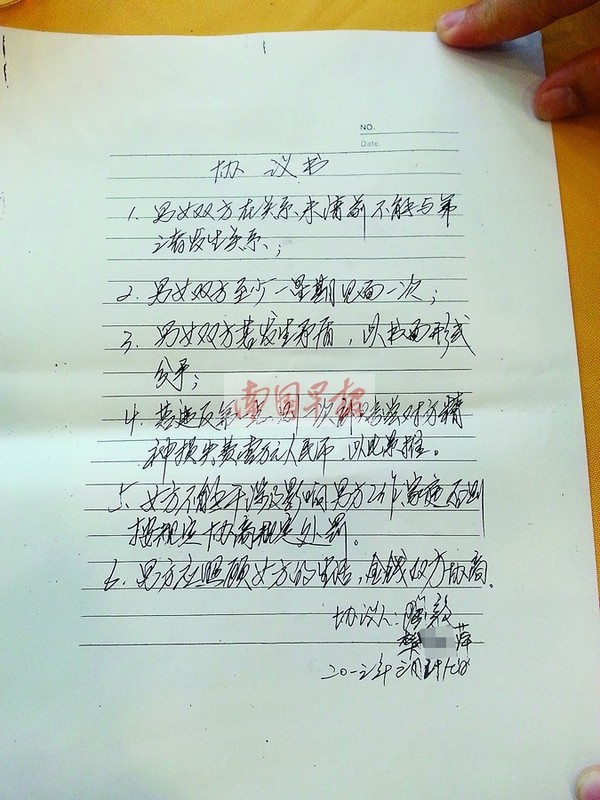 NO.
Date.
协议书
1. 男女双方在关系未清前不能与第
三者发生关系；
2. 男女双方至少一星期见面一次；
3. 男女双方若发生矛盾，以书面形式
公平；
南国早报
4. 若违反第一点，一次即赔偿对方精
神损失费壹万元人民币，以此类推。
5. 女方不能干涉及影响男方工作、家庭，否则
按规定协商规定处罚。
6. 男方应照顾女方的生活，金钱双方协商。
协议人：陶毅
樊 萍
二0一三年三月